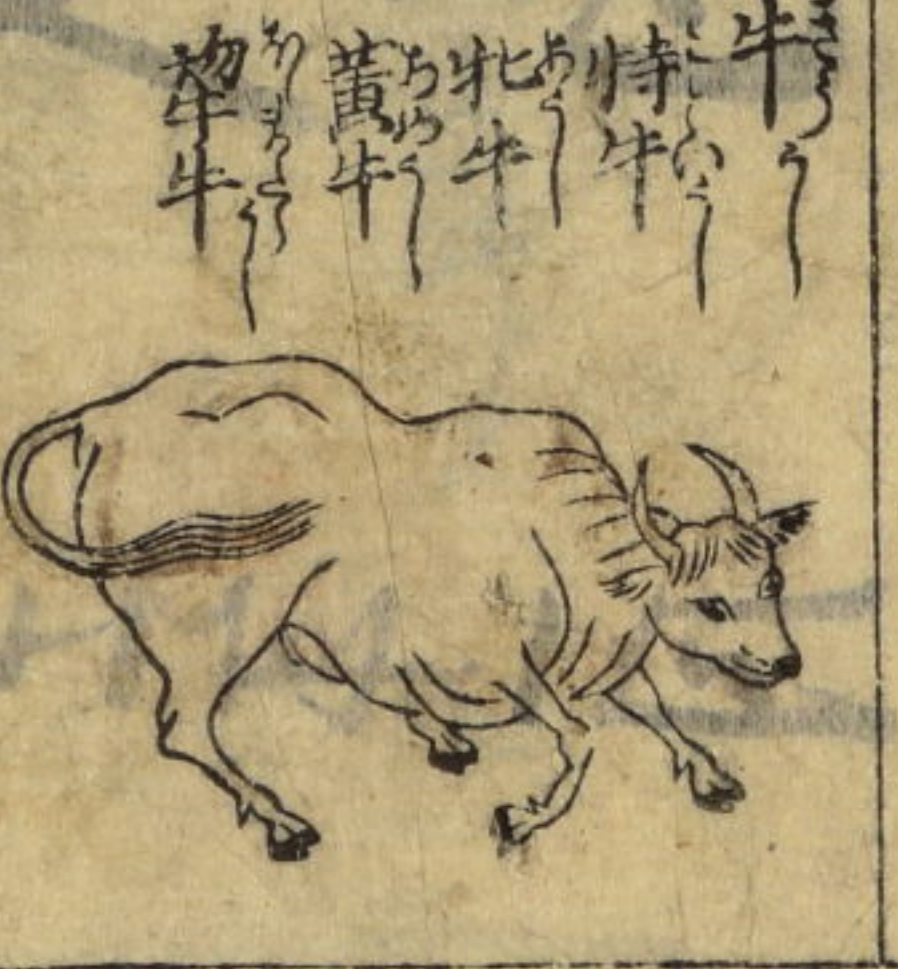 牛
うし
特牛
こというし
牝牛
めうし
黄牛
あめうし
犂牛
ほしまだらうし